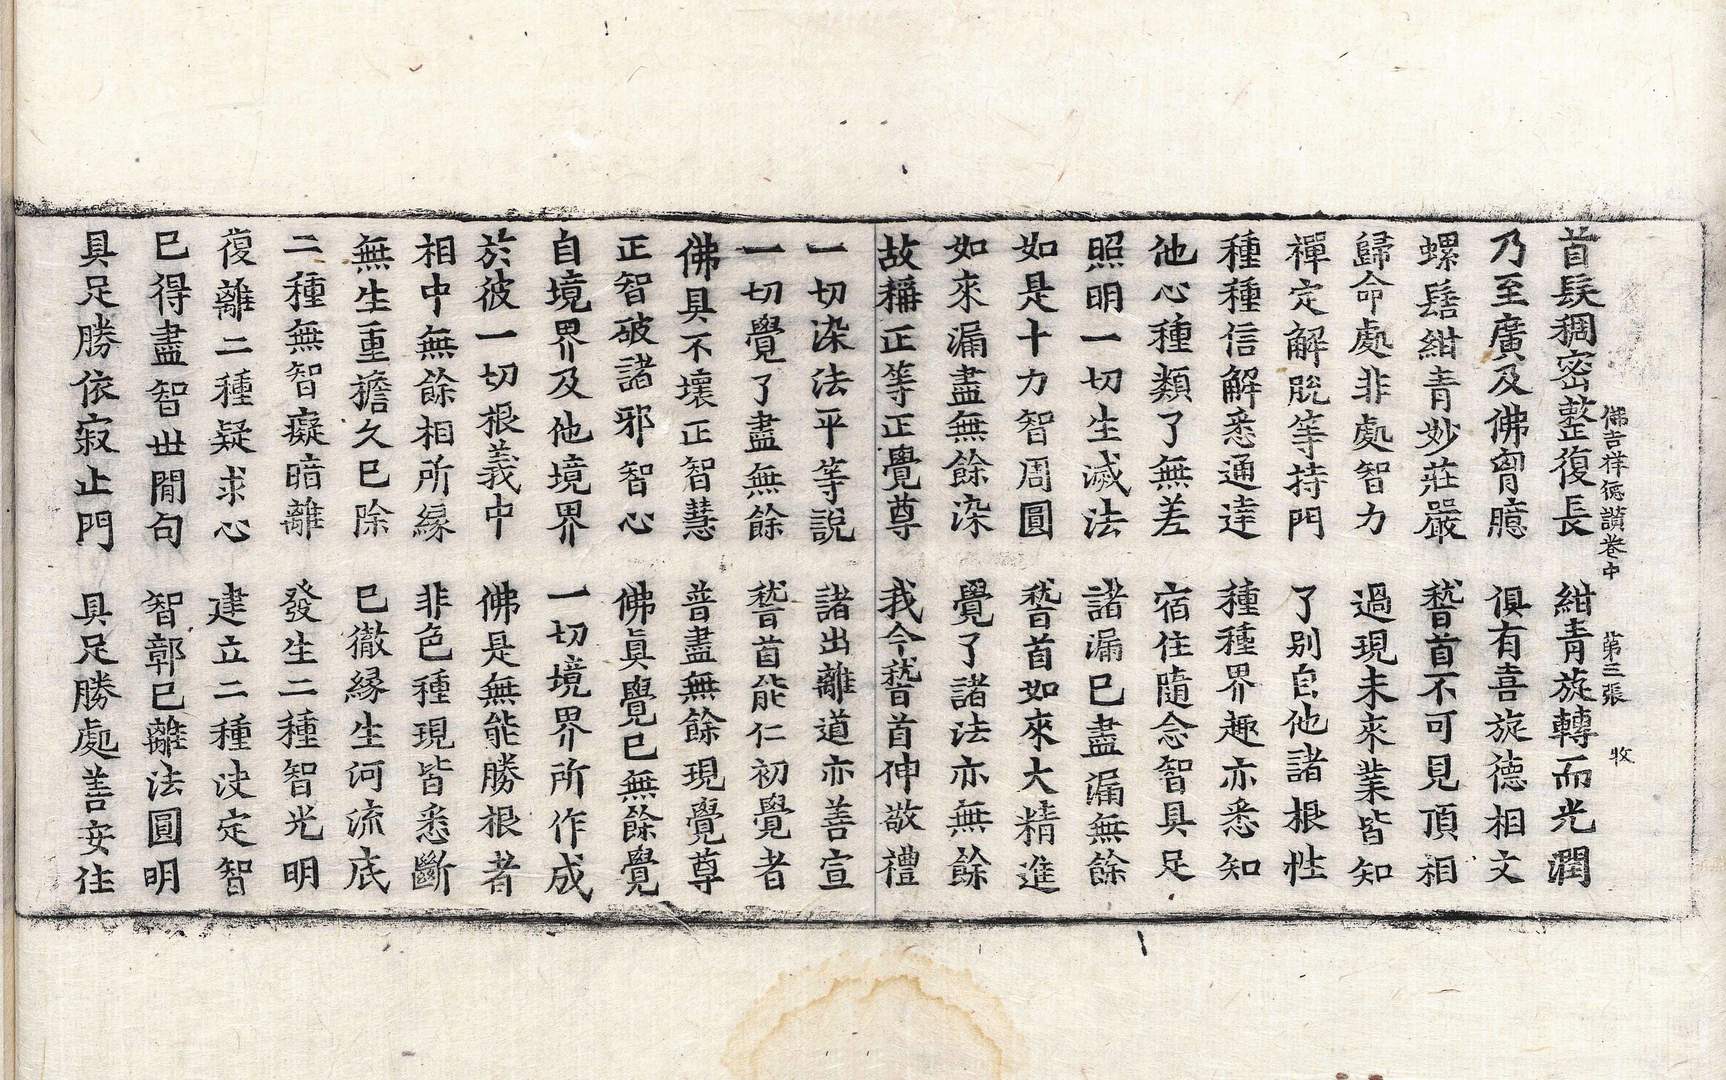 佛吉祥德讃卷中 第三張 牧
首髮稠密整復長 紺青旋轉而光潤
乃至廣及佛胷臆 俱有喜旋德相文
螺髻紺青妙莊嚴 䭫首不可見頂相
歸命處非處智力 過現未來業皆知
禪定解脫等持門 了别自他諸根性
種種信解悉通達 種種界趣亦悉知
他心種類了無差 宿住隨念智具足
照明一切生滅法 諸漏已盡漏無餘
如是十力智周圓 䭫首如來大精進
如來漏盡無餘染 覺了諸法亦無餘
故稱正等正覺尊 我今䭫首伸敬禮
一切染法平等說 諸出離道亦善宣
一切覺了盡無餘 䭫首能仁初覺者
佛具不壞正智慧 普盡無餘現覺尊
正智破諸邪智心 佛眞覺已無餘覺
自境界及他境界 一切境界所作成
於彼一切根義中 佛是無能勝根者
相中無餘相所緣 非色種現皆悉斷
無生重擔久已除 已徹緣生河流底
二種無智癡暗離 發生二種智光明
復離二種疑求心 建立二種決定智
已得盡智世間句 智郭已離法圓明
具足勝依寂止門 具足勝處善安住